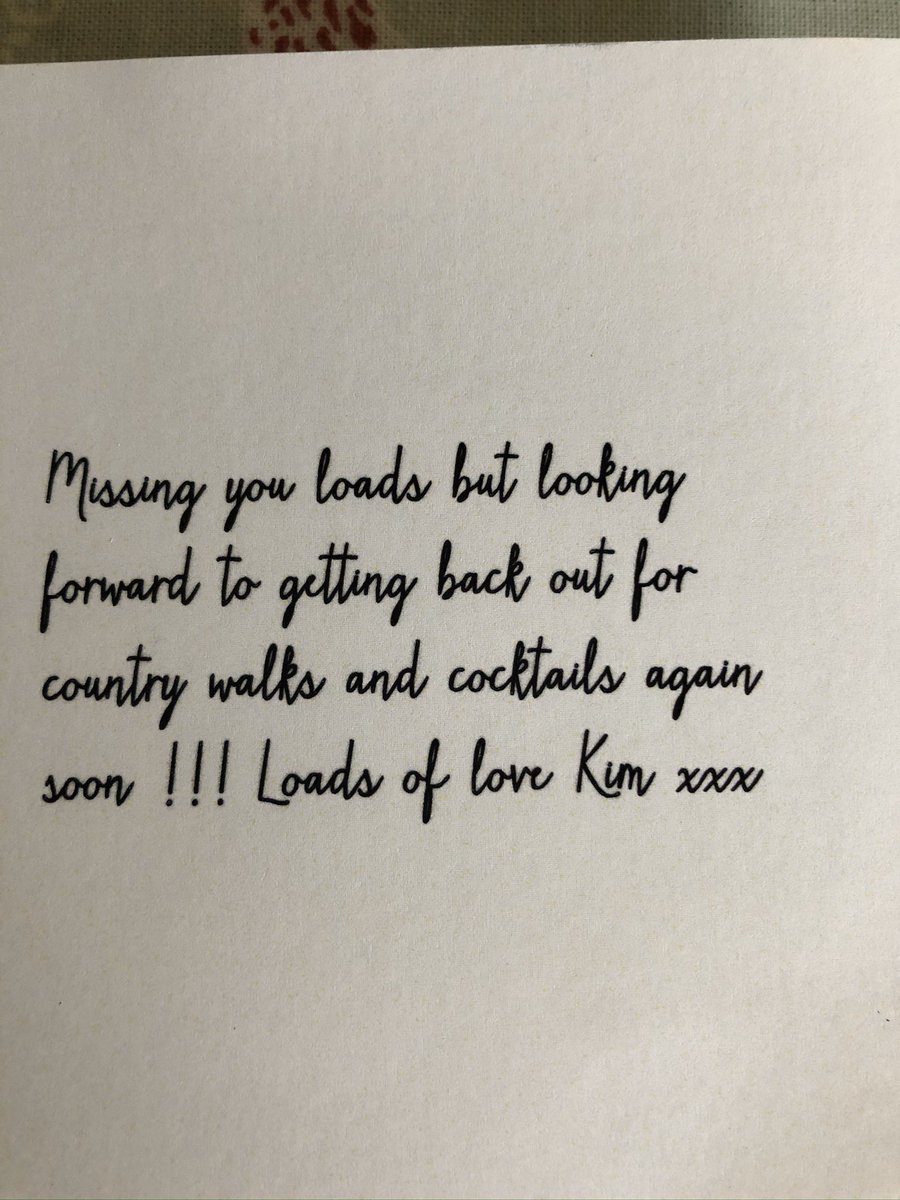 Missing you loads but looking
forward to getting back out for
country walks and cocktails again
soon !!! Loads of love Kim xxx